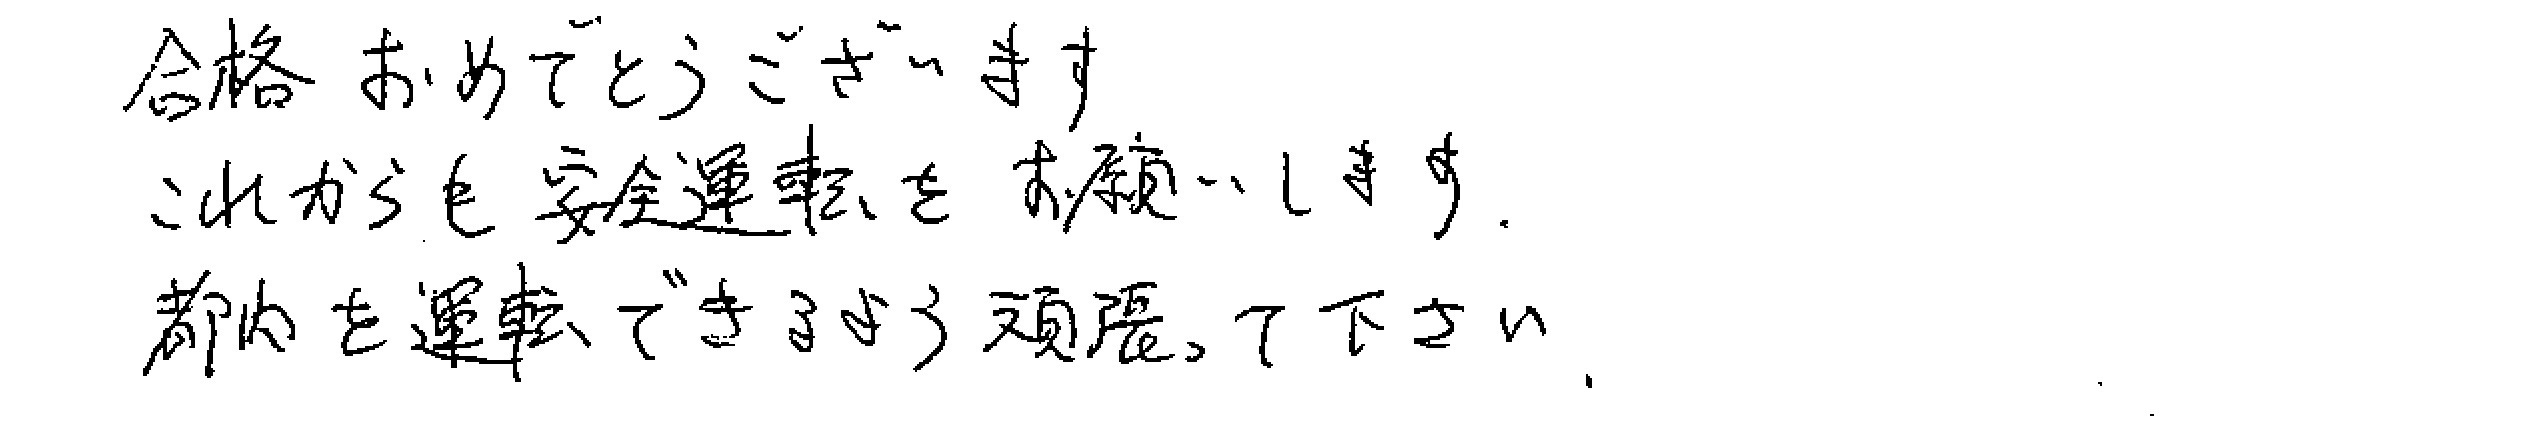 合格おめでとうございます
これからも安全運転をお願いします.
都内を運転できるよう頑張って下さい.